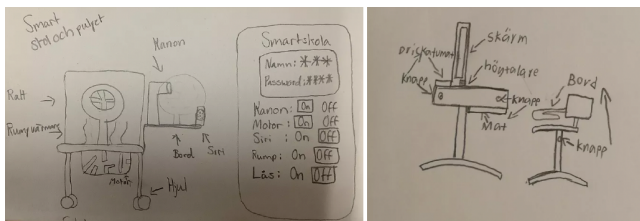 Smart
stol och pulpet
Kanon
Ratt
Rumpvärmare
Motor
Bord
Siri
Hjul
Smartskola
Namn: ***
Password: ****
Kanon: On Off
Motor: On Off
Siri: On Off
Rump: On Off
Lås: On Off
skärm
högtalare
Knapp
knapp
Mat
Bord
knapp